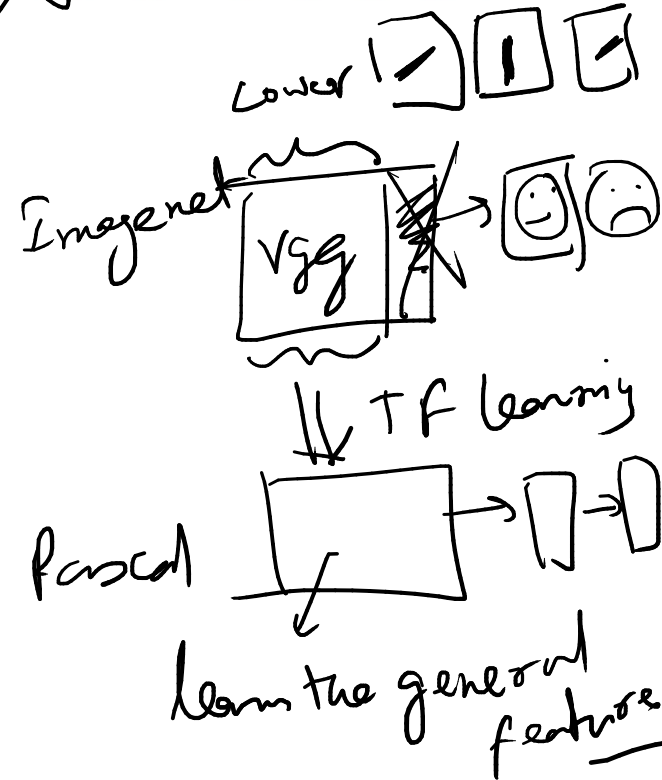 Lower
Imagenet
Vgg
TF learning
Pascal
learns the general
features